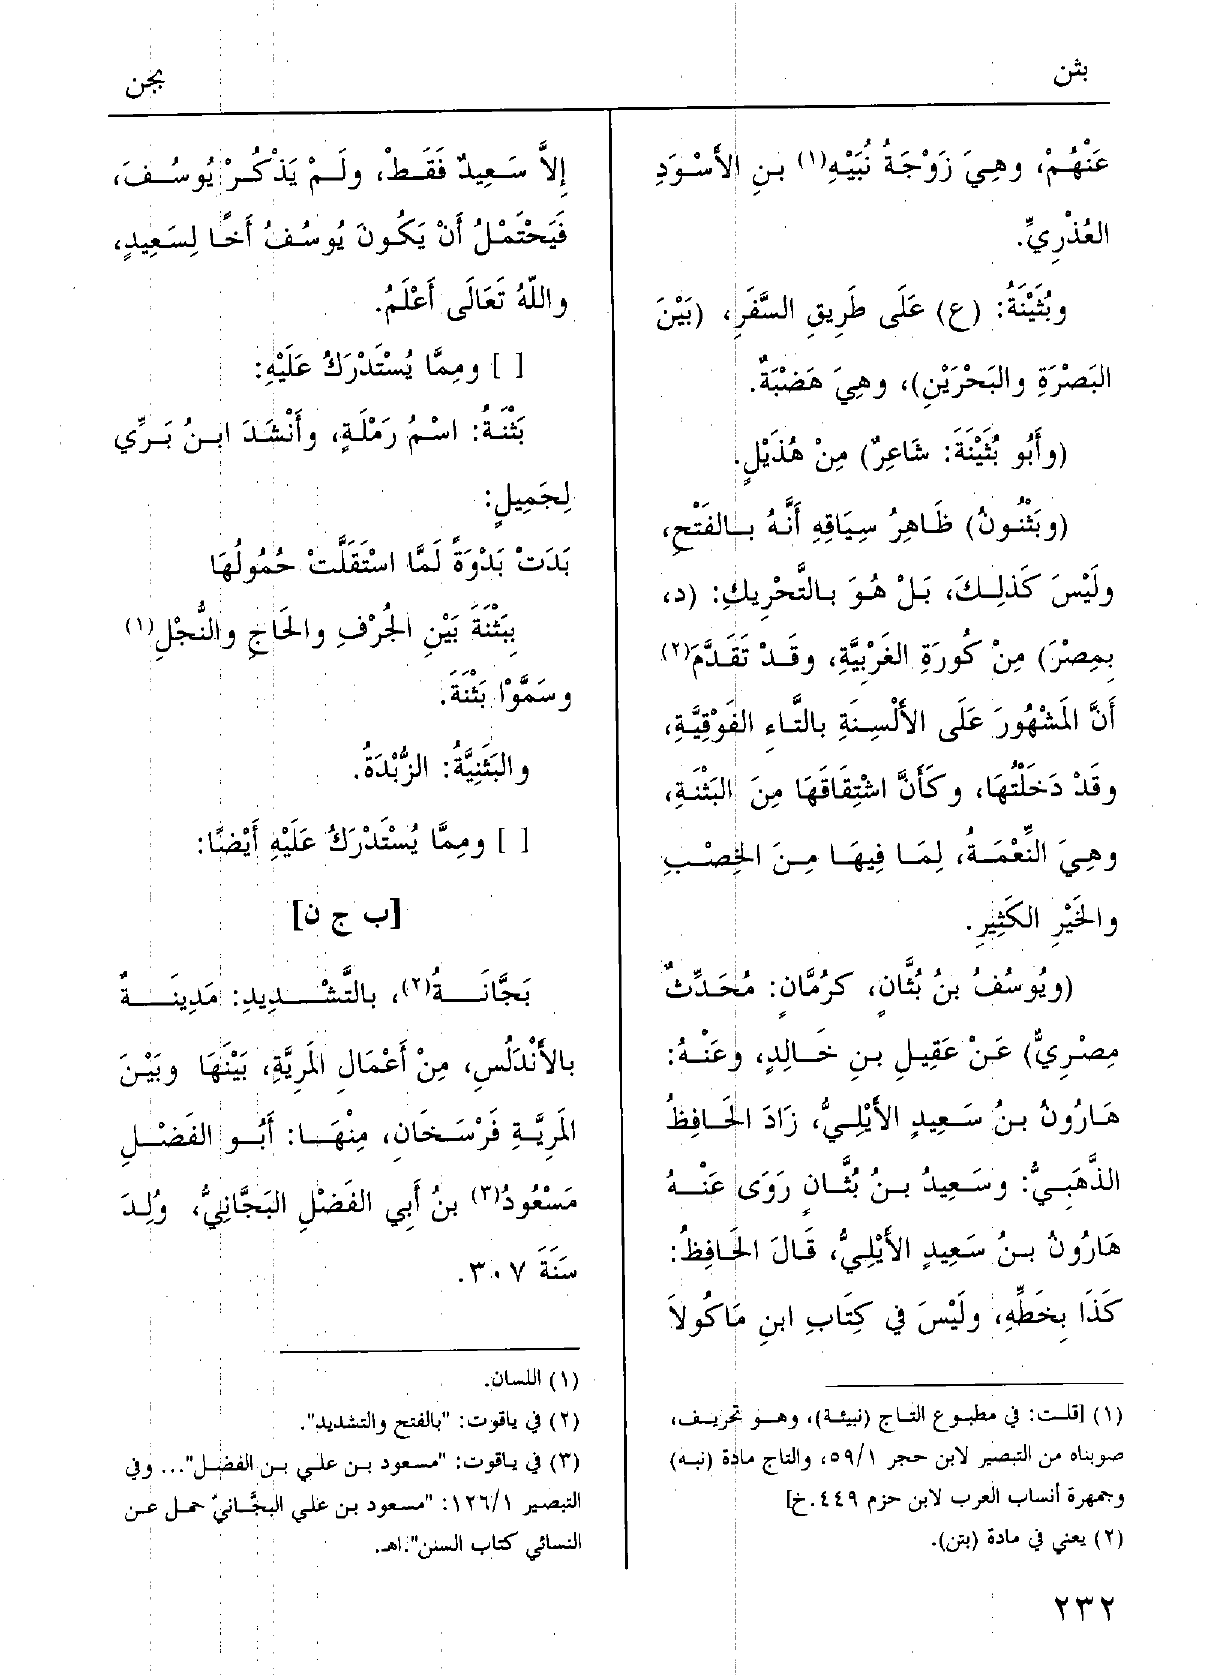 بثن
بجن
عَنْهُمْ، وهِيَ زَوْجَةُ نُبَيْهِ(١) بنِ الأَسْوَدِ
العُذْرِيِّ.
وبُثَيْنَةُ: (ع) عَلَى طَرِيقِ السَّفَرِ، (بَيْنَ
البَصْرَةِ والبَحْرَيْنِ)، وهِيَ هَضْبَةٌ.
(وأَبُو بُثَيْنَةَ: شَاعِرٌ) مِنْ هُذَيْلٍ.
(وبَثْنُونُ) ظَاهِرُ سِيَاقِهِ أَنَّهُ بِالفَتْحِ،
ولَيْسَ كَذلِكَ، بَلْ هُوَ بالتَّحْرِيكِ: (د،
بِمِصْرَ) مِنْ كُورَةِ الغَرْبِيَّةِ، وقَدْ تَقَدَّمَ(٢)
أَنَّ المَشْهُورَ عَلَى الأَلْسِنَةِ بالتَّاءِ الفَوْقِيَّةِ،
وقَدْ دَخَلْتُهَا، وكَأَنَّ اشْتِقَاقَهَا مِنَ البَثْنَةِ،
وهِيَ النِّعْمَةُ، لِمَا فِيهَا مِنَ الخِصْبِ
والخَيْرِ الكَثِيرِ.
(ويُوسُفُ بنُ بُثَّانٍ، كرُمَّانٍ: مُحَدِّثٌ
مِصْرِيٌّ) عَنْ عَقِيلِ بنِ خَالِدٍ، وعَنْهُ:
هَارُونُ بنُ سَعِيدٍ الأَيْلِيُّ، زَادَ الحَافِظُ
الذَّهَبِيُّ: وسَعِيدُ بنُ بُثَّانٍ رَوَى عَنْهُ
هَارُونُ بنُ سَعِيدٍ الأَيْلِيُّ، قَالَ الحَافِظُ:
كَذَا بِخَطِّهِ، ولَيْسَ فِي كِتَابِ ابنِ مَاكُولاَ
(١) [قلت: في مطبوع التاج (نبيئة)، وهو تحريف،
صوبناه من التبصير لابن حجر ٥٩/١، والتاج مادة (نبه)
وجمهرة أنساب العرب لابن حزم ٤٤٩.خ]
(٢) يعني في مادة (بتن).
إِلاَّ سَعِيدٌ فَقَطْ، ولَمْ يَذْكُرْ يُوسُفَ،
فَيَحْتَمْلُ أَنْ يَكُونَ يُوسُفُ أَخًا لِسَعِيدٍ،
واللّهُ تَعَالَى أَعْلَمُ.
[ ] ومِمَّا يُسْتَدْرَكُ عَلَيْهِ:
بَثْنَةُ: اسْمُ رَمْلَةٍ، وأَنْشَدَ ابنُ بَرِّي
لِجَمِيلٍ:
بَدَتْ بَدْوَةً لَمَّا اسْتَقَلَّتْ حُمُولُهَا
بِبَثْنَةَ بَيْنِ الجُرْفِ والحَاجِ والنُّجْلِ(١)
وسَمَّوْا بَثْنَةَ.
والبَثَنِيَّةُ: الزُّبْدَةُ.
[ ] ومِمَّا يُسْتَدْرَكُ عَلَيْهِ أَيْضًا:
[ب ج ن]
بَجَّانَةُ(٢)، بالتَّشْدِيدِ: مَدِينَةٌ
بالأَنْدَلُسِ، مِنْ أَعْمَالِ المَرِيَّةِ، بَيْنَهَا وبَيْنَ
المَرِيَّةِ فَرْسَخَانِ، مِنْهَا: أَبُو الفَضْلِ
مَسْعُودُ(٣) بنُ أَبِي الفَضْلِ البَجَّانِيُّ، وُلِدَ
سَنَةَ ٣٠٧.
(١) اللسان.
(٢) في ياقوت: "بالفتح والتشديد".
(٣) في ياقوت: "مسعود بن علي بن الفضل"... وفي
التبصير ١٢٦/١: "مسعود بن علي البجَّانيّ حمل عن
النسائي كتاب السنن".اهـ.
٢٣٢